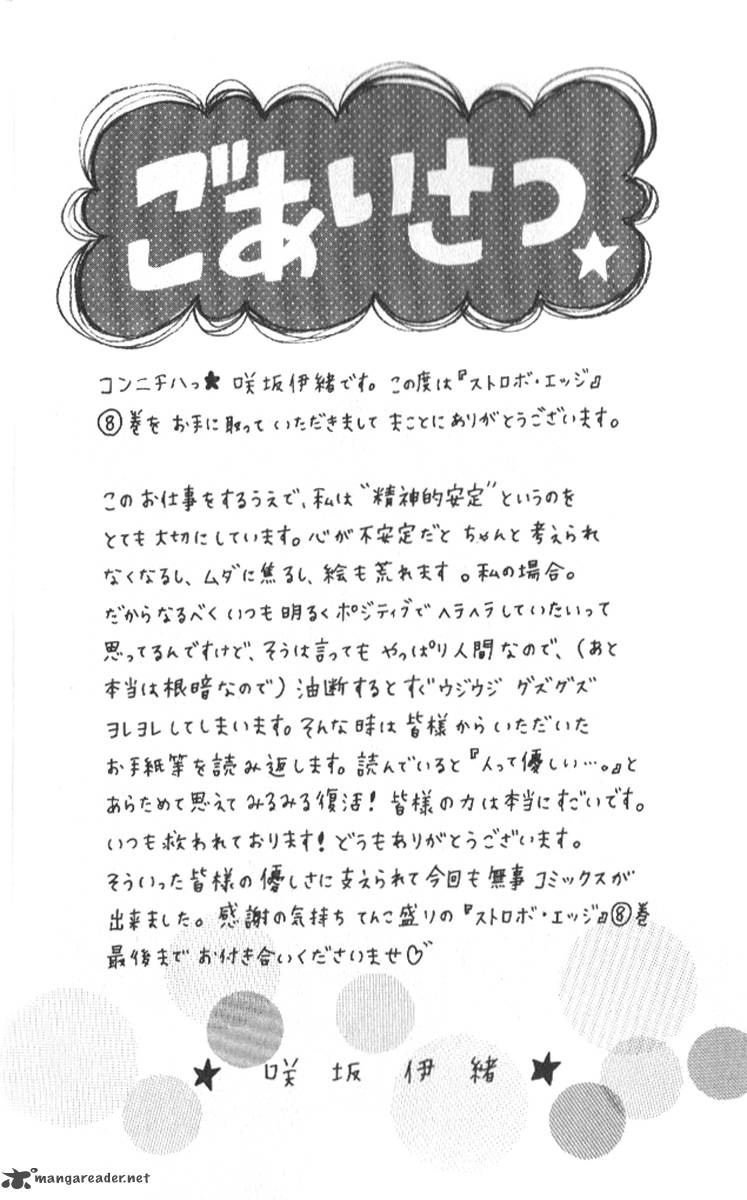 ごあいさつ★
コンニチハっ★ 咲坂伊緒です。この度は『ストロボ・エッジ』
⑧巻を お手に取って いただきまして まことにありがとうございます。
このお仕事をするうえで、私は“精神的安定”というのを
とても大切にしています。心が不安定だと ちゃんと考えられ
なくなるし、ムダに焦るし、絵も荒れます。私の場合。
だからなるべくいつも明るくポジティブでヘラヘラしていたいって
思ってるんですけど、そうは言っても やっぱり人間なので、(あと
本当は根暗なので)油断するとすぐウジウジ グズグズ
ヨレヨレしてしまいます。そんな時は皆様からいただいた
お手紙等を読み返します。読んでいると『人って優しい…。』と
あらためて思えて みるみる復活! 皆様の力は本当にすごいです。
いつも救われております! どうもありがとうございます。
そういった皆様の優しさに支えられて今回も無事コミックスが
出来ました。感謝の気持ち てんこ盛りの『ストロボ・エッジ』⑧巻
最後まで お付き合いくださいませ♡
★ 咲坂伊緒 ★
mangareader.net